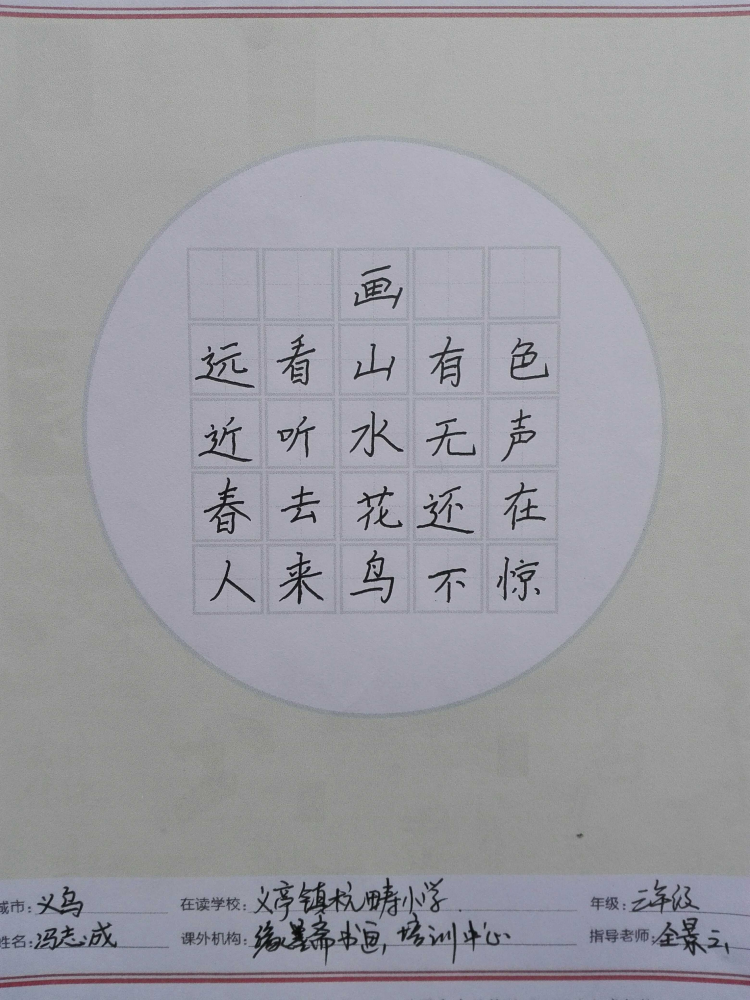 画
远看山有色
近听水无声
春去花还在
人来鸟不惊
城市:义乌 在读学校:义亭镇杭畴小学 年级:二年级
姓名:冯志成 课外机构:缘墨斋书画培训中心 指导老师:金景云